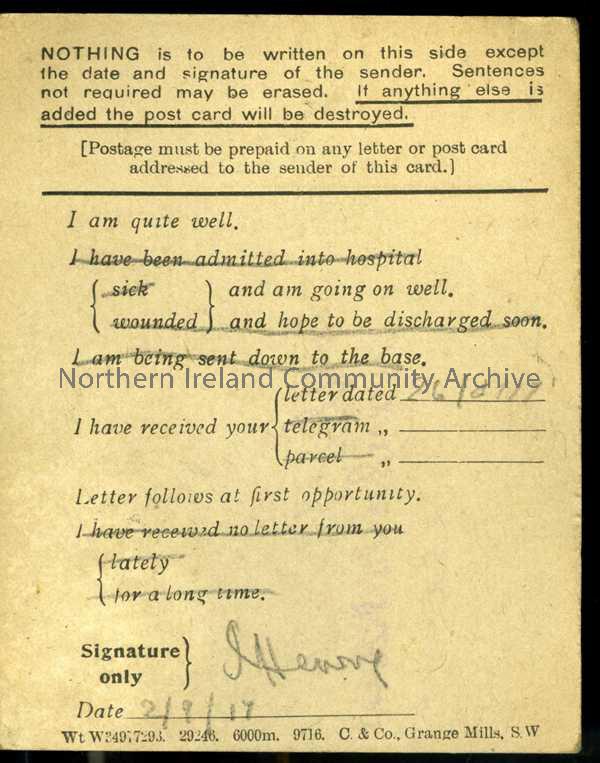 NOTHING is to be written on this side except
the date and signature of the sender. Sentences
not required may be erased. If anything else is
added the post card will be destroyed.
[Postage must be prepaid on any letter or post card
addressed to the sender of this card.]
I am quite well.
I have been admitted into hospital
sick and am going on well.
wounded and hope to be discharged soon.
I am being sent down to the base.
Northern Ireland Community Archive
letter dated
I have received your telegram „
parcel „
Letter follows at first opportunity.
I have received no letter from you
lately
for a long time.
Signature
only
Henry
Date 2/9/17
Wt W3497/293. 29246. 6000m. 9716. C. & Co., Grange Mills, S.W